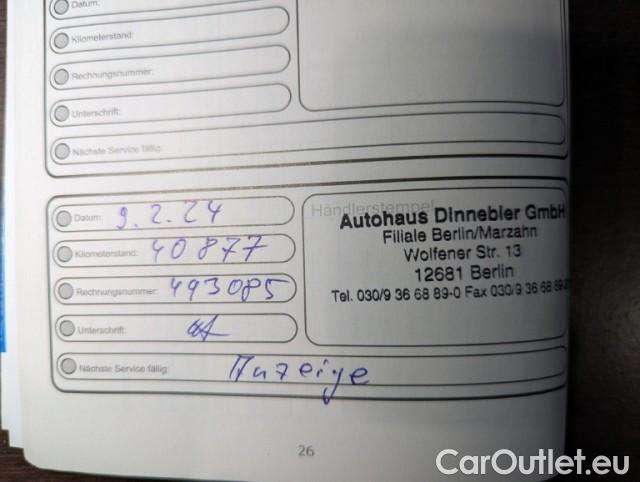 Datum:
Kilometerstand:
Rechnungsnummer:
Unterschrift:
Nächste Service fällig:
Datum: 9.2.24
Kilometerstand: 40877
Rechnungsnummer: 493085
Unterschrift:
Nächste Service fällig: Anzeige
Händlerstempel
Autohaus Dinnebier GmbH
Filiale Berlin/Marzahn
Wolfener Str. 13
12681 Berlin
Tel. 030/9 36 68 89-0 Fax 030/9 36 68 89-
26
CarOutlet.eu